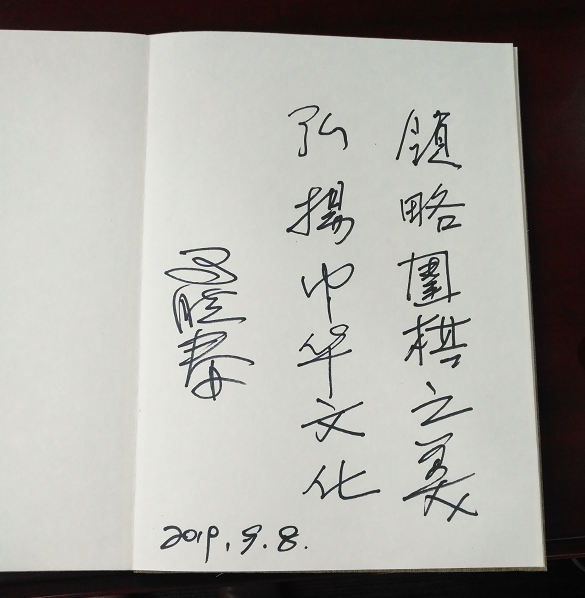 領略圍棋之美
弘揚中华文化
馬曉春
2019.9.8.